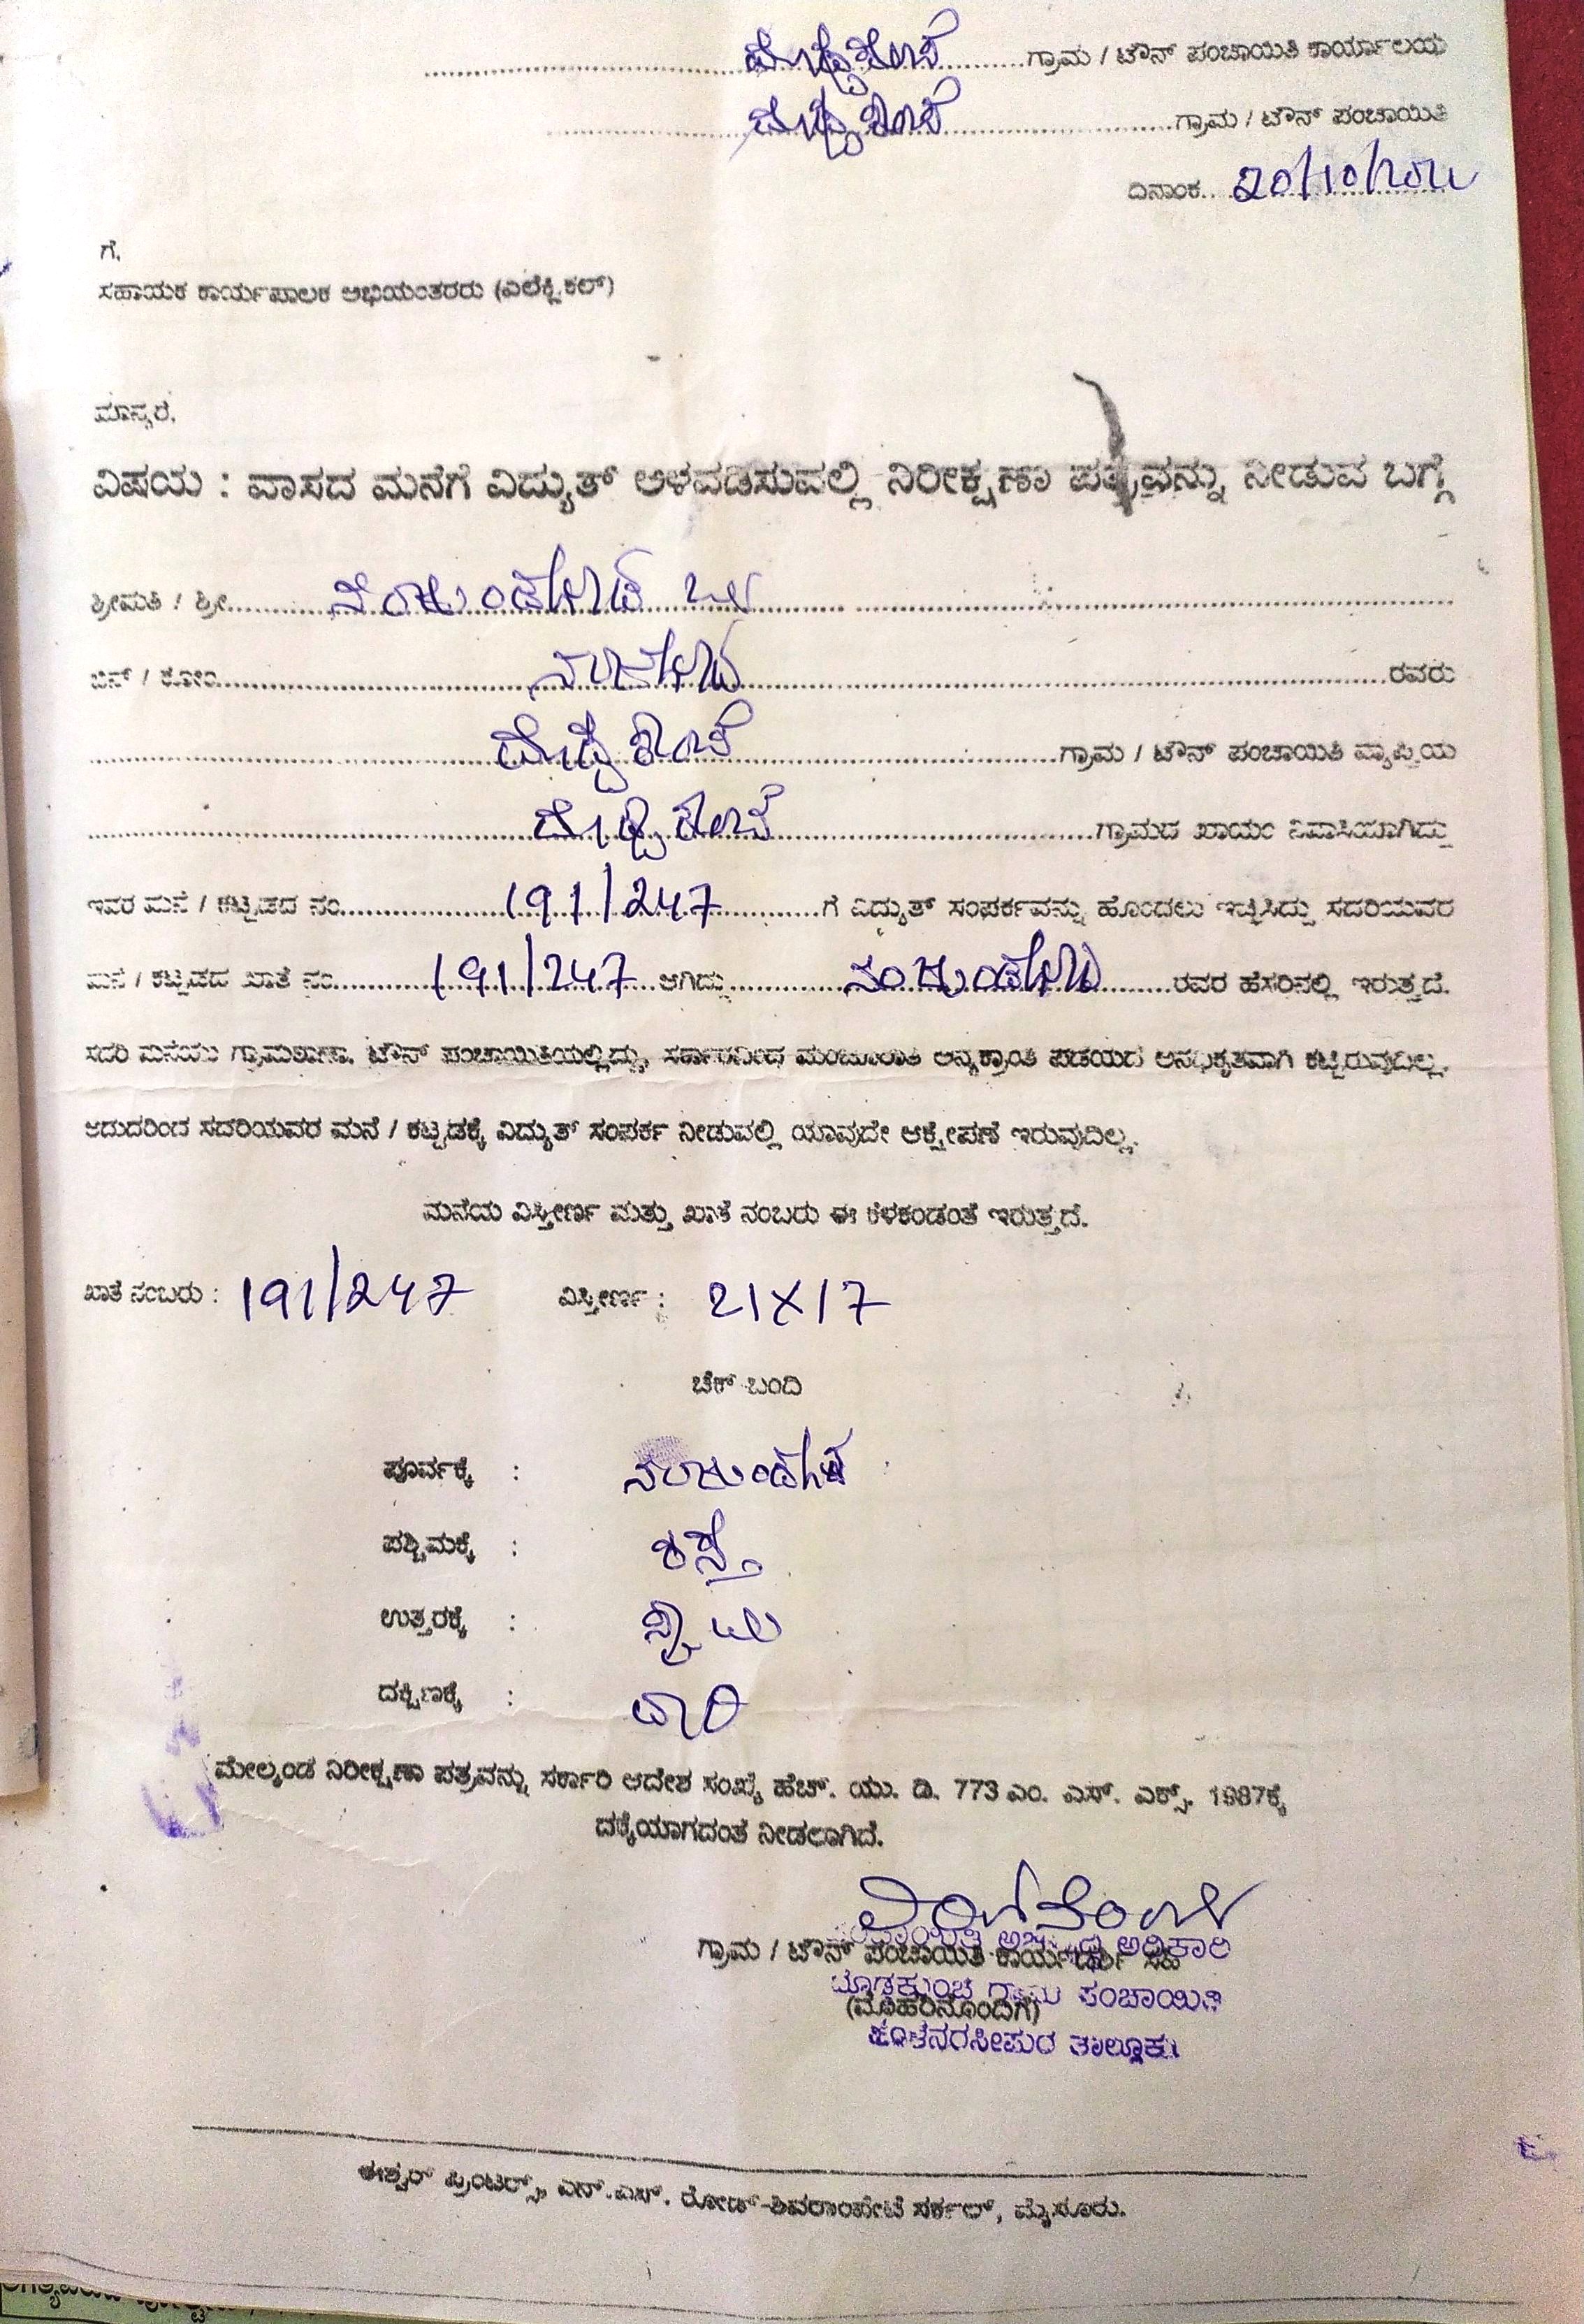 ಗ್ರಾಮ / ಟೌನ್ ಪಂಚಾಯಿತಿ ಕಾರ್ಯಾಲಯ
ಗ್ರಾಮ / ಟೌನ್ ಪಂಚಾಯಿತಿ
ದಿನಾಂಕ.. 20/10/2022
ಗೆ,
ಸಹಾಯಕ ಕಾರ್ಯಪಾಲಕ ಅಭಿಯಂತರರು (ಎಲೆಕ್ಟ್ರಿಕಲ್)
ಮಾನ್ಯರೆ,
ವಿಷಯ : ವಾಸದ ಮನೆಗೆ ವಿದ್ಯುತ್ ಅಳವಡಿಸುವಲ್ಲಿ ನಿರೀಕ್ಷಣಾ ಪತ್ರವನ್ನು ನೀಡುವ ಬಗ್ಗೆ
ಶ್ರೀಮತಿ / ಶ್ರೀ
ಬಿನ್ / ಕೋಂ ರವರು
ಗ್ರಾಮ / ಟೌನ್ ಪಂಚಾಯಿತಿ ವ್ಯಾಪ್ತಿಯ
ಗ್ರಾಮದ ಖಾಯಂ ನಿವಾಸಿಯಾಗಿದ್ದು
ಇವರ ಮನೆ / ಕಟ್ಟಡದ ನಂ. 191/247 ಗೆ ವಿದ್ಯುತ್ ಸಂಪರ್ಕವನ್ನು ಹೊಂದಲು ಇಚ್ಛಿಸಿದ್ದು ಸದರಿಯವರ
ಮನೆ / ಕಟ್ಟಡದ ಖಾತೆ ನಂ. 191/247 ಆಗಿದ್ದು ನಂಜುಂಡೇಗೌಡ ರವರ ಹೆಸರಿನಲ್ಲಿ ಇರುತ್ತದೆ.
ಸದರಿ ಮನೆಯು ಗ್ರಾಮಠಾಣಾ, ಟೌನ್ ಪಂಚಾಯಿತಿಯಲ್ಲಿದ್ದು, ಸರ್ಕಾರದಿಂದ ಮಂಜೂರಾತಿ ಅನ್ಯಕ್ರಾಂತಿ ಪಡೆಯದೆ ಅನಧಿಕೃತವಾಗಿ ಕಟ್ಟಿರುವುದಿಲ್ಲ.
ಆದುದರಿಂದ ಸದರಿಯವರ ಮನೆ / ಕಟ್ಟಡಕ್ಕೆ ವಿದ್ಯುತ್ ಸಂಪರ್ಕ ನೀಡುವಲ್ಲಿ ಯಾವುದೇ ಆಕ್ಷೇಪಣೆ ಇರುವುದಿಲ್ಲ.
ಮನೆಯ ವಿಸ್ತೀರ್ಣ ಮತ್ತು ಖಾತೆ ನಂಬರು ಈ ಕೆಳಕಂಡಂತೆ ಇರುತ್ತದೆ.
ಖಾತೆ ನಂಬರು : 191/247 ವಿಸ್ತೀರ್ಣ : 21X17
ಚೆಕ್ ಬಂದಿ
ಪೂರ್ವಕ್ಕೆ : ನಂಜುಂಡೇಗೌಡ
ಪಶ್ಚಿಮಕ್ಕೆ : ರಸ್ತೆ
ಉತ್ತರಕ್ಕೆ :
ದಕ್ಷಿಣಕ್ಕೆ :
ಮೇಲ್ಕಂಡ ನಿರೀಕ್ಷಣಾ ಪತ್ರವನ್ನು ಸರ್ಕಾರಿ ಆದೇಶ ಸಂಖ್ಯೆ ಹೆಚ್. ಯು. ಡಿ. 773 ಎಂ. ಎಸ್. ಎಕ್ಸ್. 1987ಕ್ಕೆ
ದಕ್ಕೆಯಾಗದಂತೆ ನೀಡಲಾಗಿದೆ.
ಗ್ರಾಮ / ಟೌನ್ ಪಂಚಾಯಿತಿ ಕಾರ್ಯದರ್ಶಿ ಸಹಿ
(ಮೊಹರಿನೊಂದಿಗೆ)
ಪಂಚಾಯಿತಿ ಅಭಿವೃದ್ಧಿ ಅಧಿಕಾರಿ
ಗ್ರಾಮ ಪಂಚಾಯಿತಿ
ತಾಲ್ಲೂಕು
ಈಶ್ವರ್ ಪ್ರಿಂಟರ್ಸ್, ಎನ್.ಎಸ್. ರೋಡ್-ಶಿವರಾಂಪೇಟೆ ಸರ್ಕಲ್, ಮೈಸೂರು.